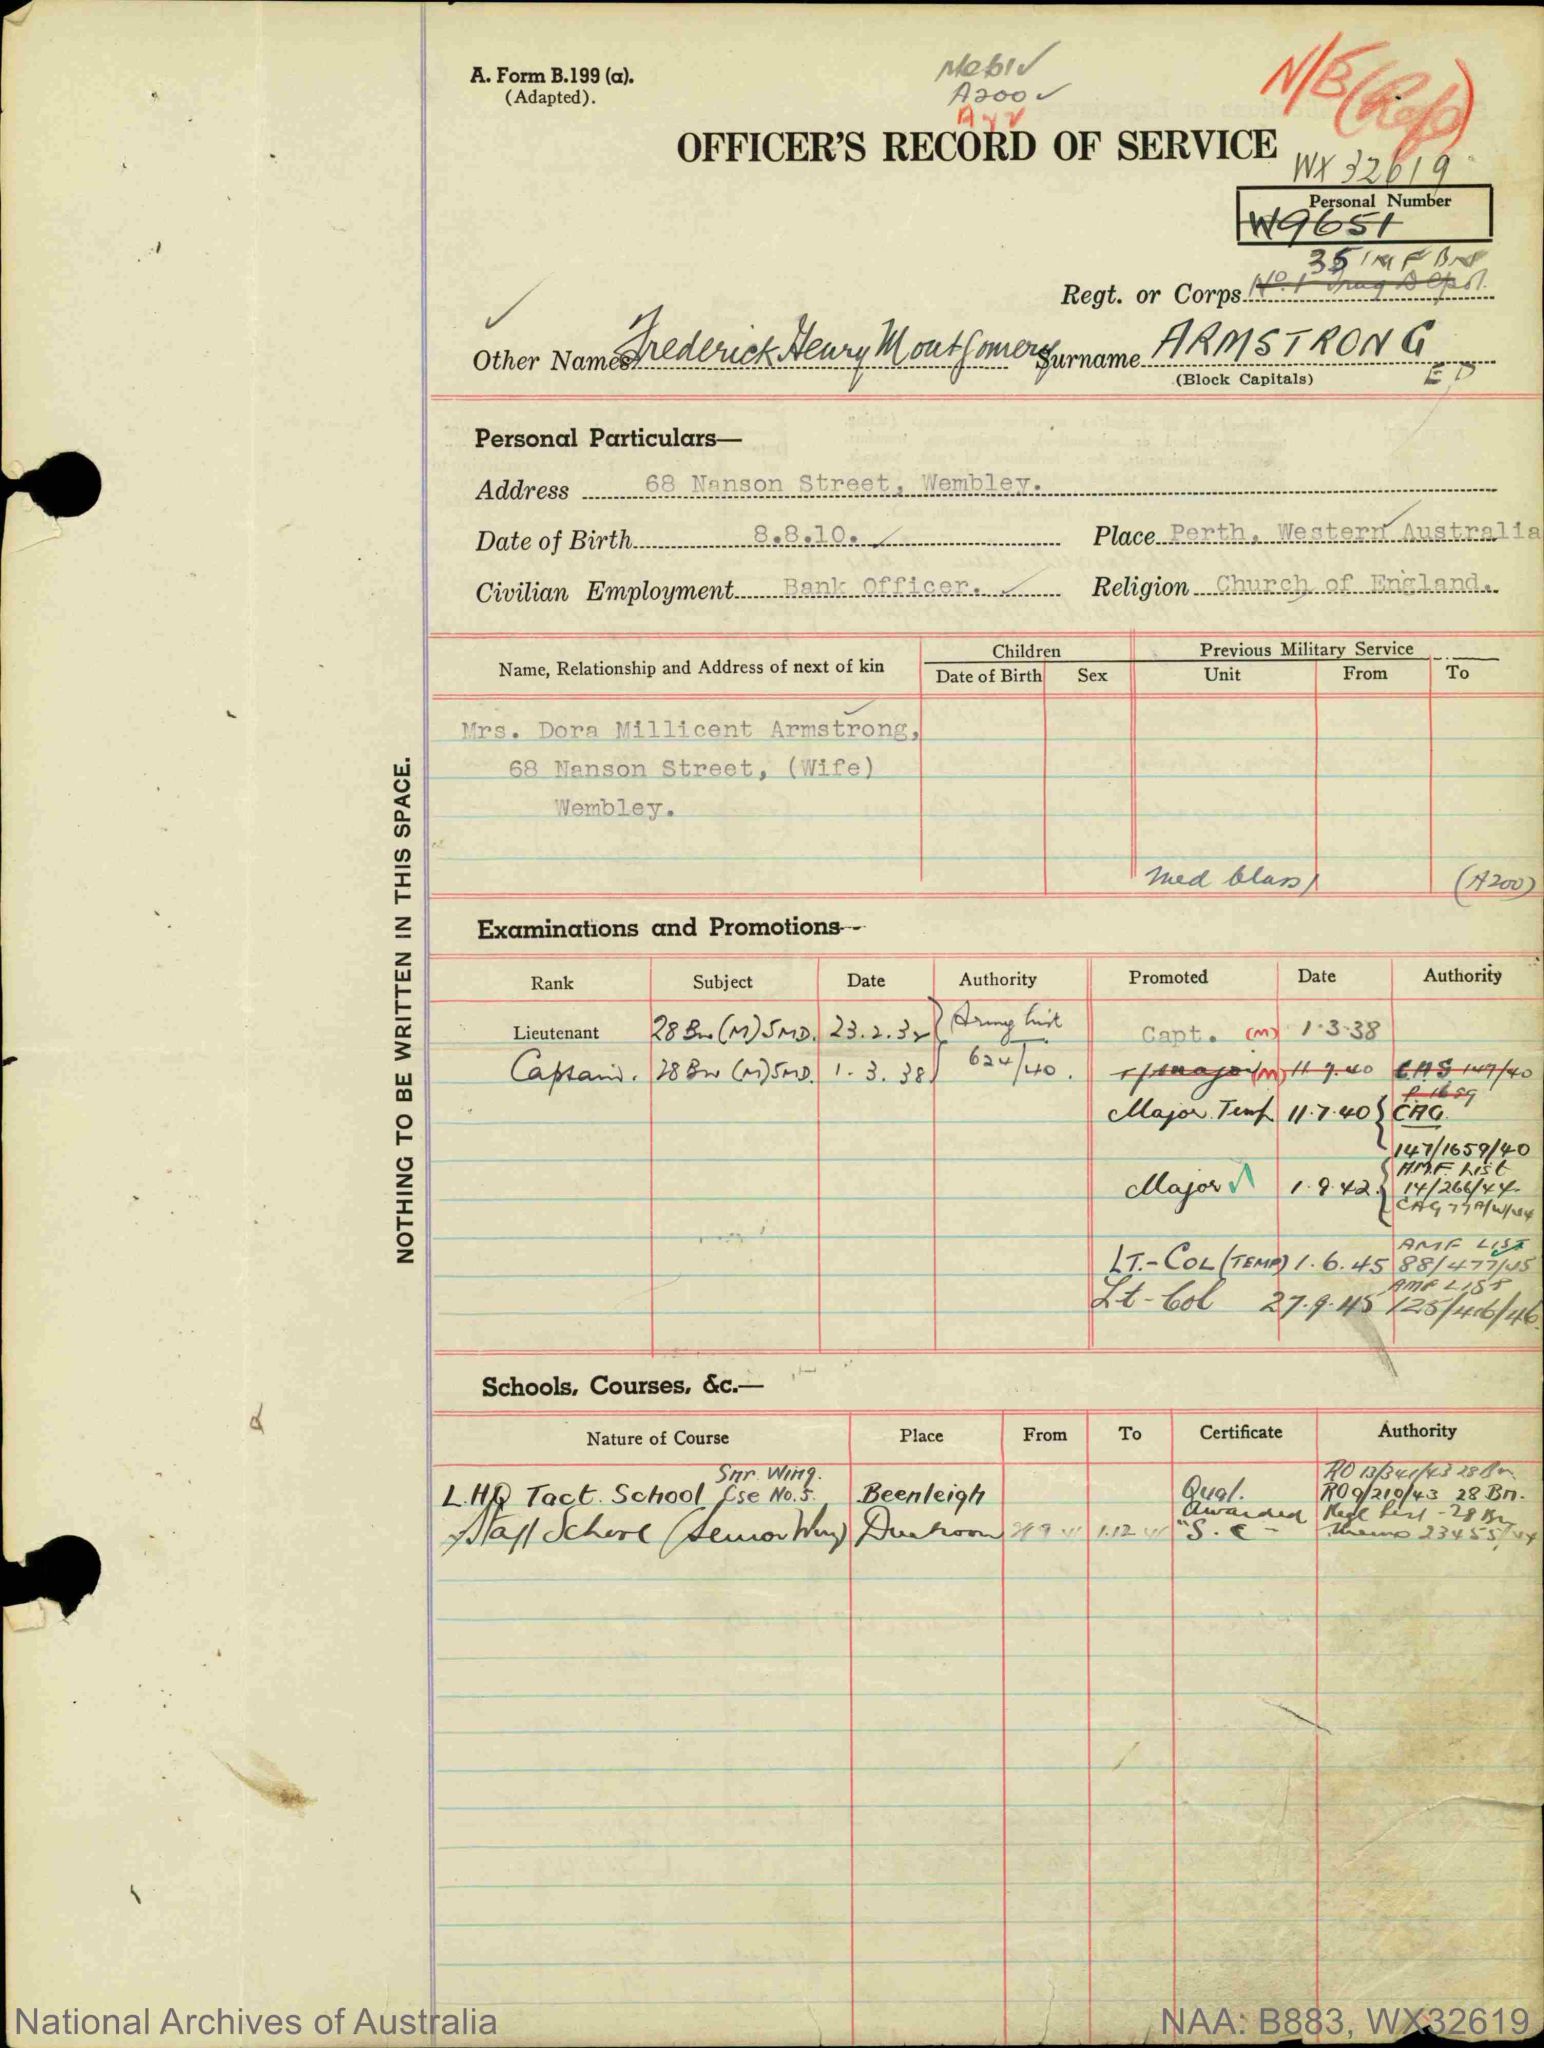 A. Form B.199 (a).
(Adapted).
A200
N/E
OFFICER'S RECORD OF SERVICE
WX 32619
Personal Number
W9651
35
Regt. or Corps No. 1
Other Names Frederick Henry Montgomery Surname ARMSTRONG
(Block Capitals)
ED
Personal Particulars—
Address 68 Nanson Street, Wembley.
Date of Birth 8.8.10. Place Perth, Western Australia
Civilian Employment Bank Officer. Religion Church of England.
Name, Relationship and Address of next of kin Children Previous Military Service
Date of Birth Sex Unit From To
Mrs. Dora Millicent Armstrong,
68 Nanson Street, (Wife)
Wembley.
Med Class 1 (A200)
Examinations and Promotions—
Rank Subject Date Authority Promoted Date Authority
Lieutenant 28 Bn (M) 23.2.32 Army List Capt. (M) 1.3.38
Captain. 28 Bn (M) 1.3.38 624/40. (M) 147/40
Major Temp 11.7.40 CAG
147/1659/40
Major 1.9.42 AMF List
14/266/44
LT.-COL (TEMP) 1.6.45 AMF LIST
88/477/45
Lt-Col 27.9.45 AMF LIST
125/406/46
Schools, Courses, &c.—
Nature of Course Place From To Certificate Authority
Snr. Wing. RO 13/341/43 28 Bn
L.HQ Tact. School Cse No. 5. Beenleigh Qual. RO 9/210/43 28 Bn.
Staff School (Senior Wing) Duntroon 1.12 Awarded
"S.C" 23455/44
NOTHING TO BE WRITTEN IN THIS SPACE.
National Archives of Australia
NAA: B883, WX32619